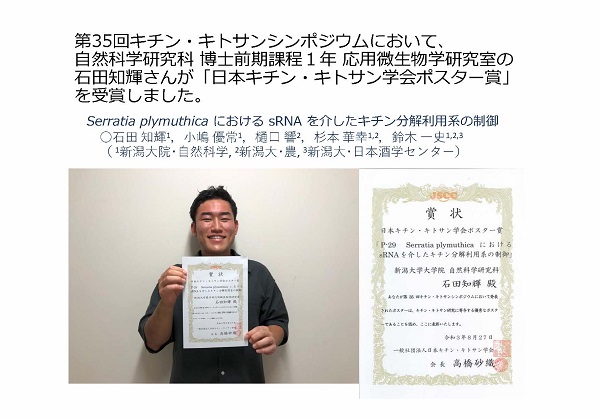 第35回キチン・キトサンシンポジウムにおいて、
自然科学研究科 博士前期課程１年 応用微生物学研究室の
石田知輝さんが「日本キチン・キトサン学会ポスター賞」
を受賞しました。
Serratia plymuthica における sRNA を介したキチン分解利用系の制御
○石田 知輝¹，小嶋 優常¹，樋口 響²，杉本 華幸¹,²，鈴木 一史¹,²,³
（¹新潟大院・自然科学, ²新潟大・農, ³新潟大・日本酒学センター）
賞 状
石田知輝 殿
高橋砂織
JSCC
賞 状
日本キチン・キトサン学会ポスター賞
「P-29 Serratia plymuthica における
sRNAを介したキチン分解利用系の制御」
新潟大学大学院 自然科学研究科
石田知輝 殿
あなたが第 35 回キチン・キトサンシンポジウムにおいて発表
されたポスターは、キチン・キトサン研究に寄与する優秀なポスター
であることを認め、ここに表彰いたします。
令和３年８月２７日
一般社団法人日本キチン・キトサン学会
会 長 高橋砂織